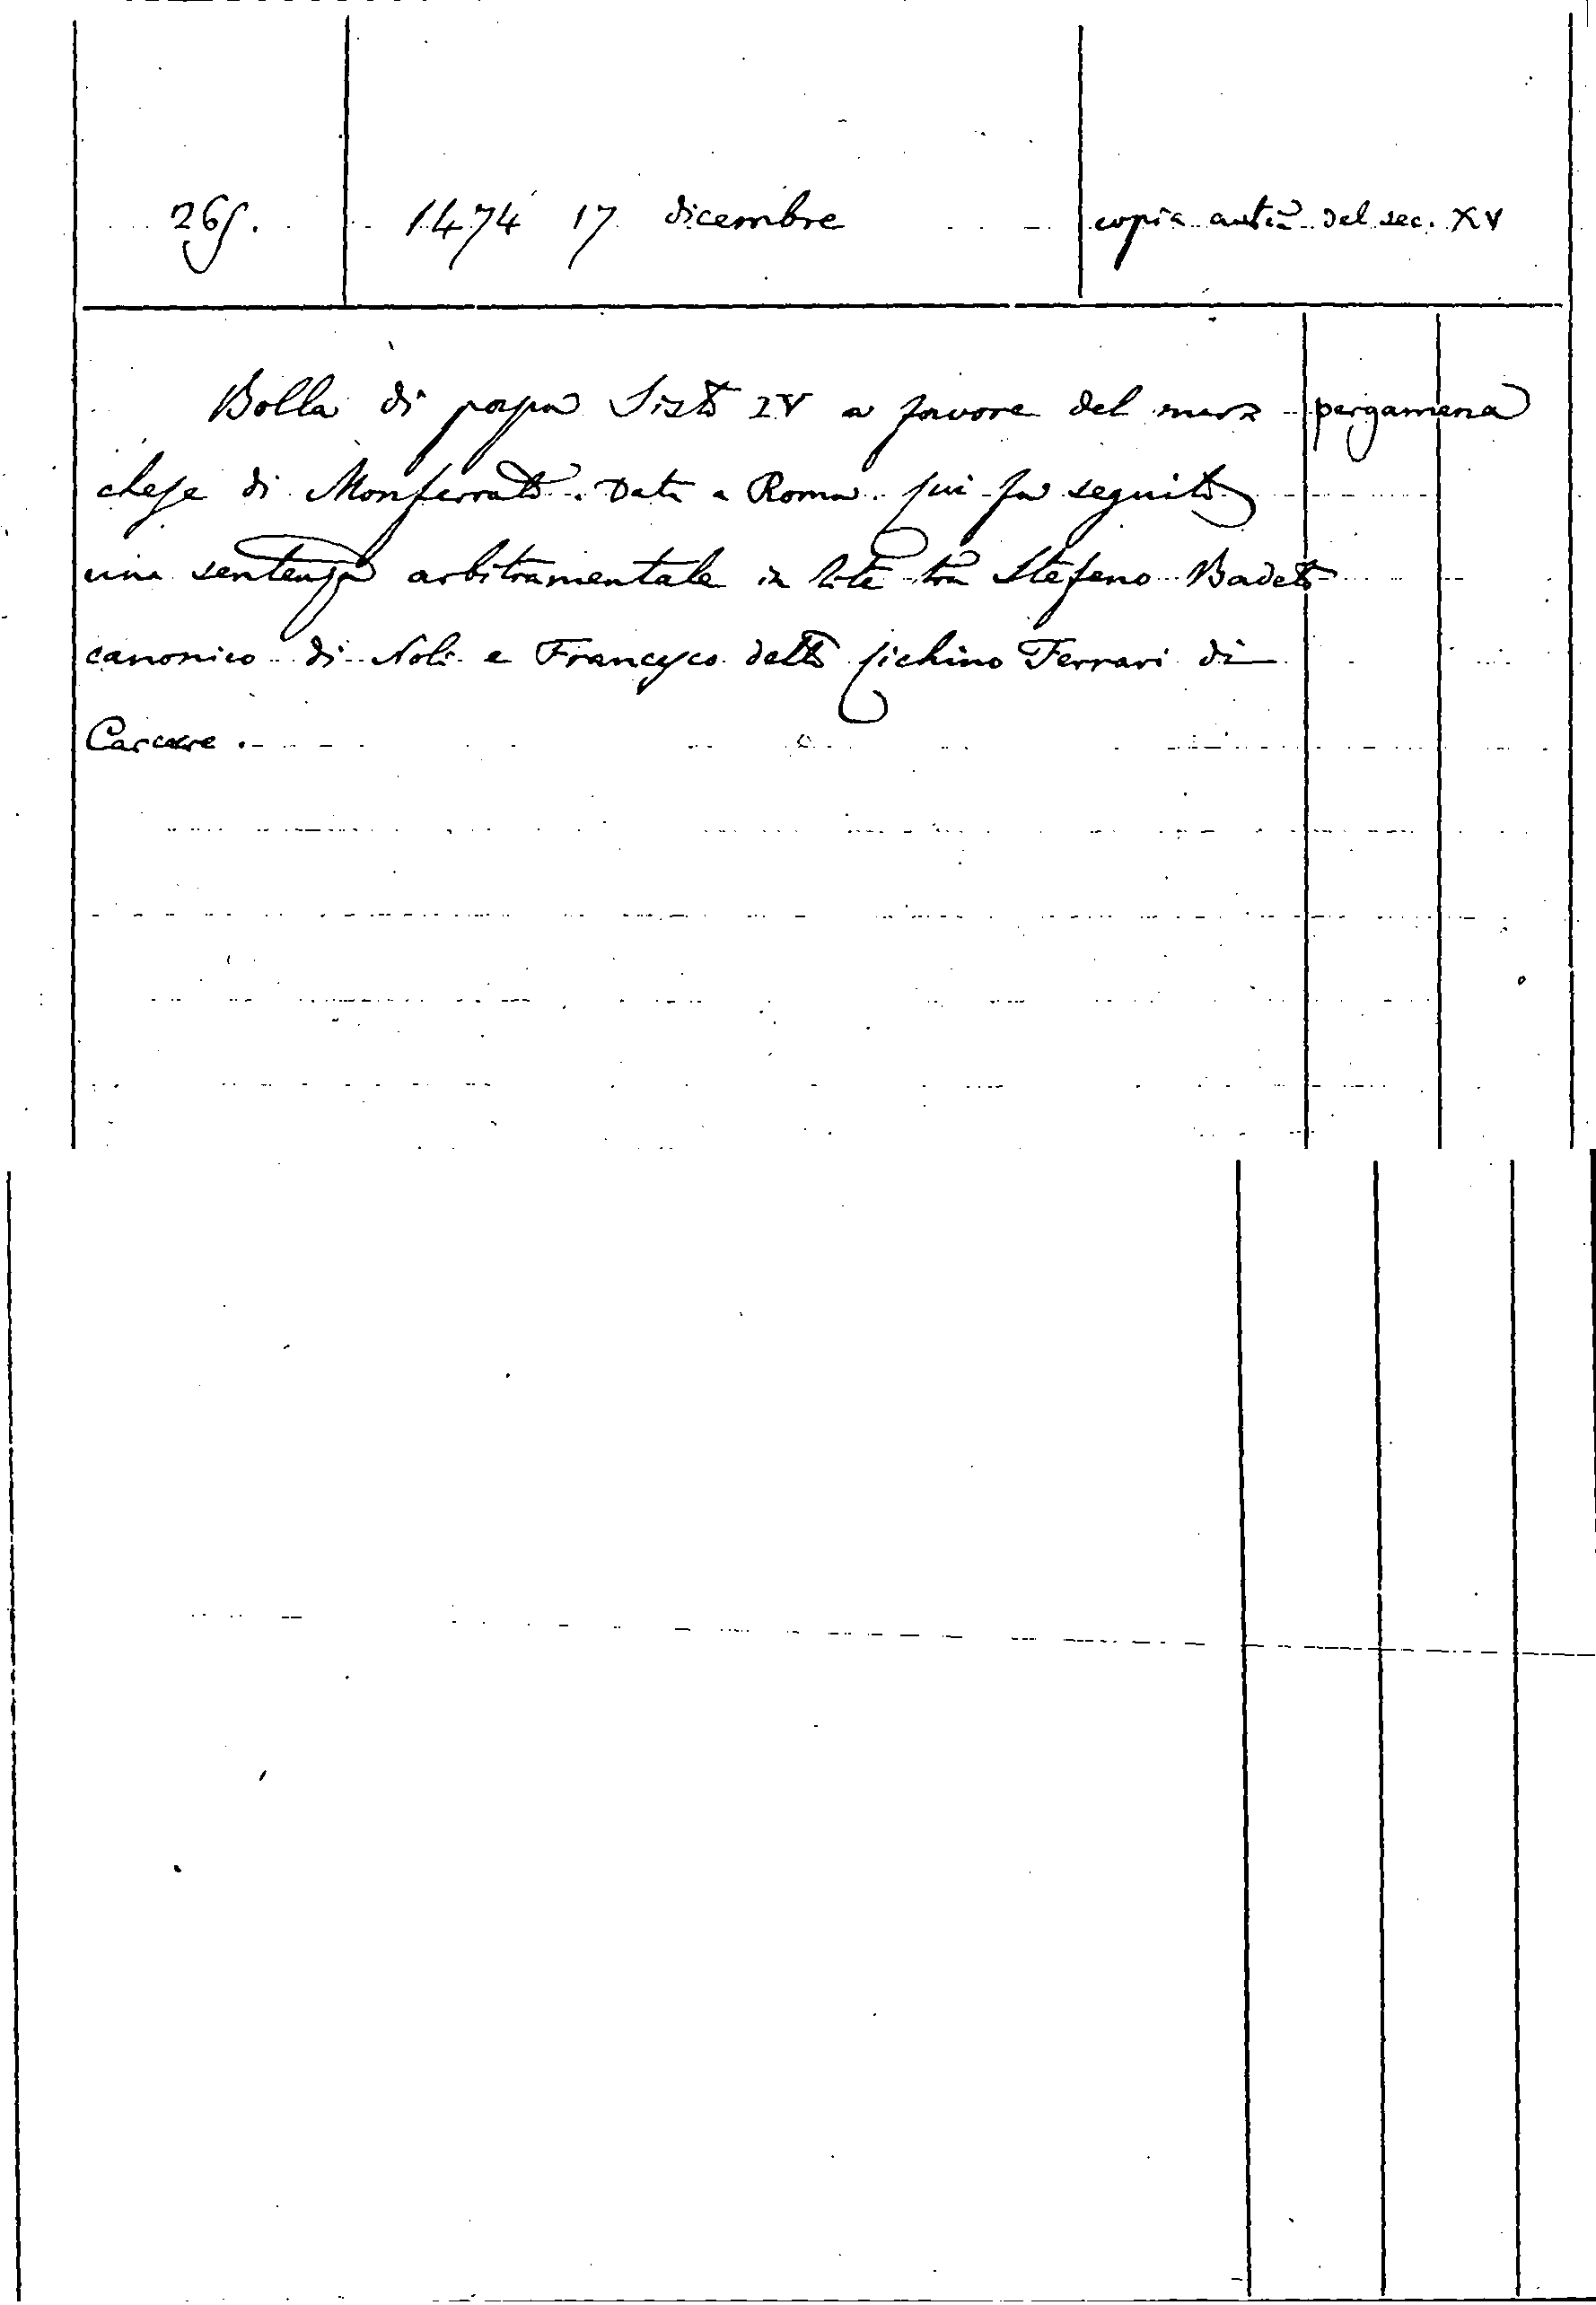 265. 1474 17 dicembre copia autᵃ del sec. XV
Bolla di papa Sisto IV a favore del mar= pergamena
chese di Monferrato. Data a Roma. Cui fa seguito
una sentenza arbitramentale in lite tra Stefano Badetto
canonico di Noli e Francesco detto Cichino Ferrari di
Carcare.